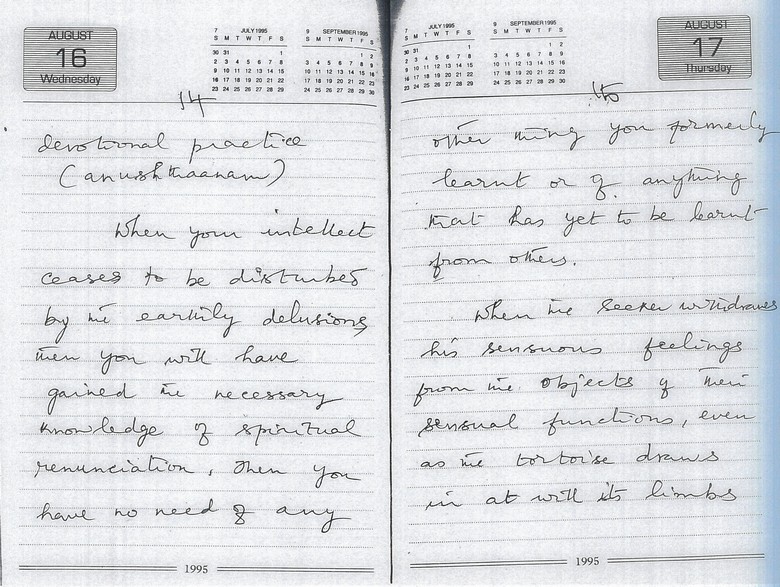 AUGUST
16
Wednesday
7 JULY 1995
S M T W T F S
30 31 1
2 3 4 5 6 7 8
9 10 11 12 13 14 15
16 17 18 19 20 21 22
23 24 25 26 27 28 29
9 SEPTEMBER 1995
S M T W T F S
1 2
3 4 5 6 7 8 9
10 11 12 13 14 15 16
17 18 19 20 21 22 23
24 25 26 27 28 29 30
14
devotional practice
(anushthaanam)
When your intellect
ceases to be disturbed
by the earthly delusions
then you will have
gained the necessary
knowledge of spiritual
renunciation, then you
have no need of any
1995
7 JULY 1995
S M T W T F S
30 31 1
2 3 4 5 6 7 8
9 10 11 12 13 14 15
16 17 18 19 20 21 22
23 24 25 26 27 28 29
9 SEPTEMBER 1995
S M T W T F S
1 2
3 4 5 6 7 8 9
10 11 12 13 14 15 16
17 18 19 20 21 22 23
24 25 26 27 28 29 30
AUGUST
17
Thursday
15
other thing you formerly
learnt or of anything
that has yet to be learnt
from others.
When the seeker withdraws
his sensuous feelings
from the objects of their
sensual functions, even
as the tortoise draws
in at will its limbs
1995